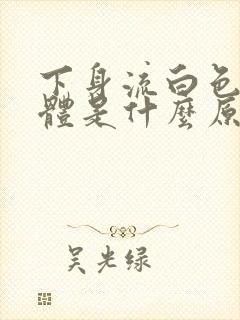 下身流白色
體是什麼原
吴光绿